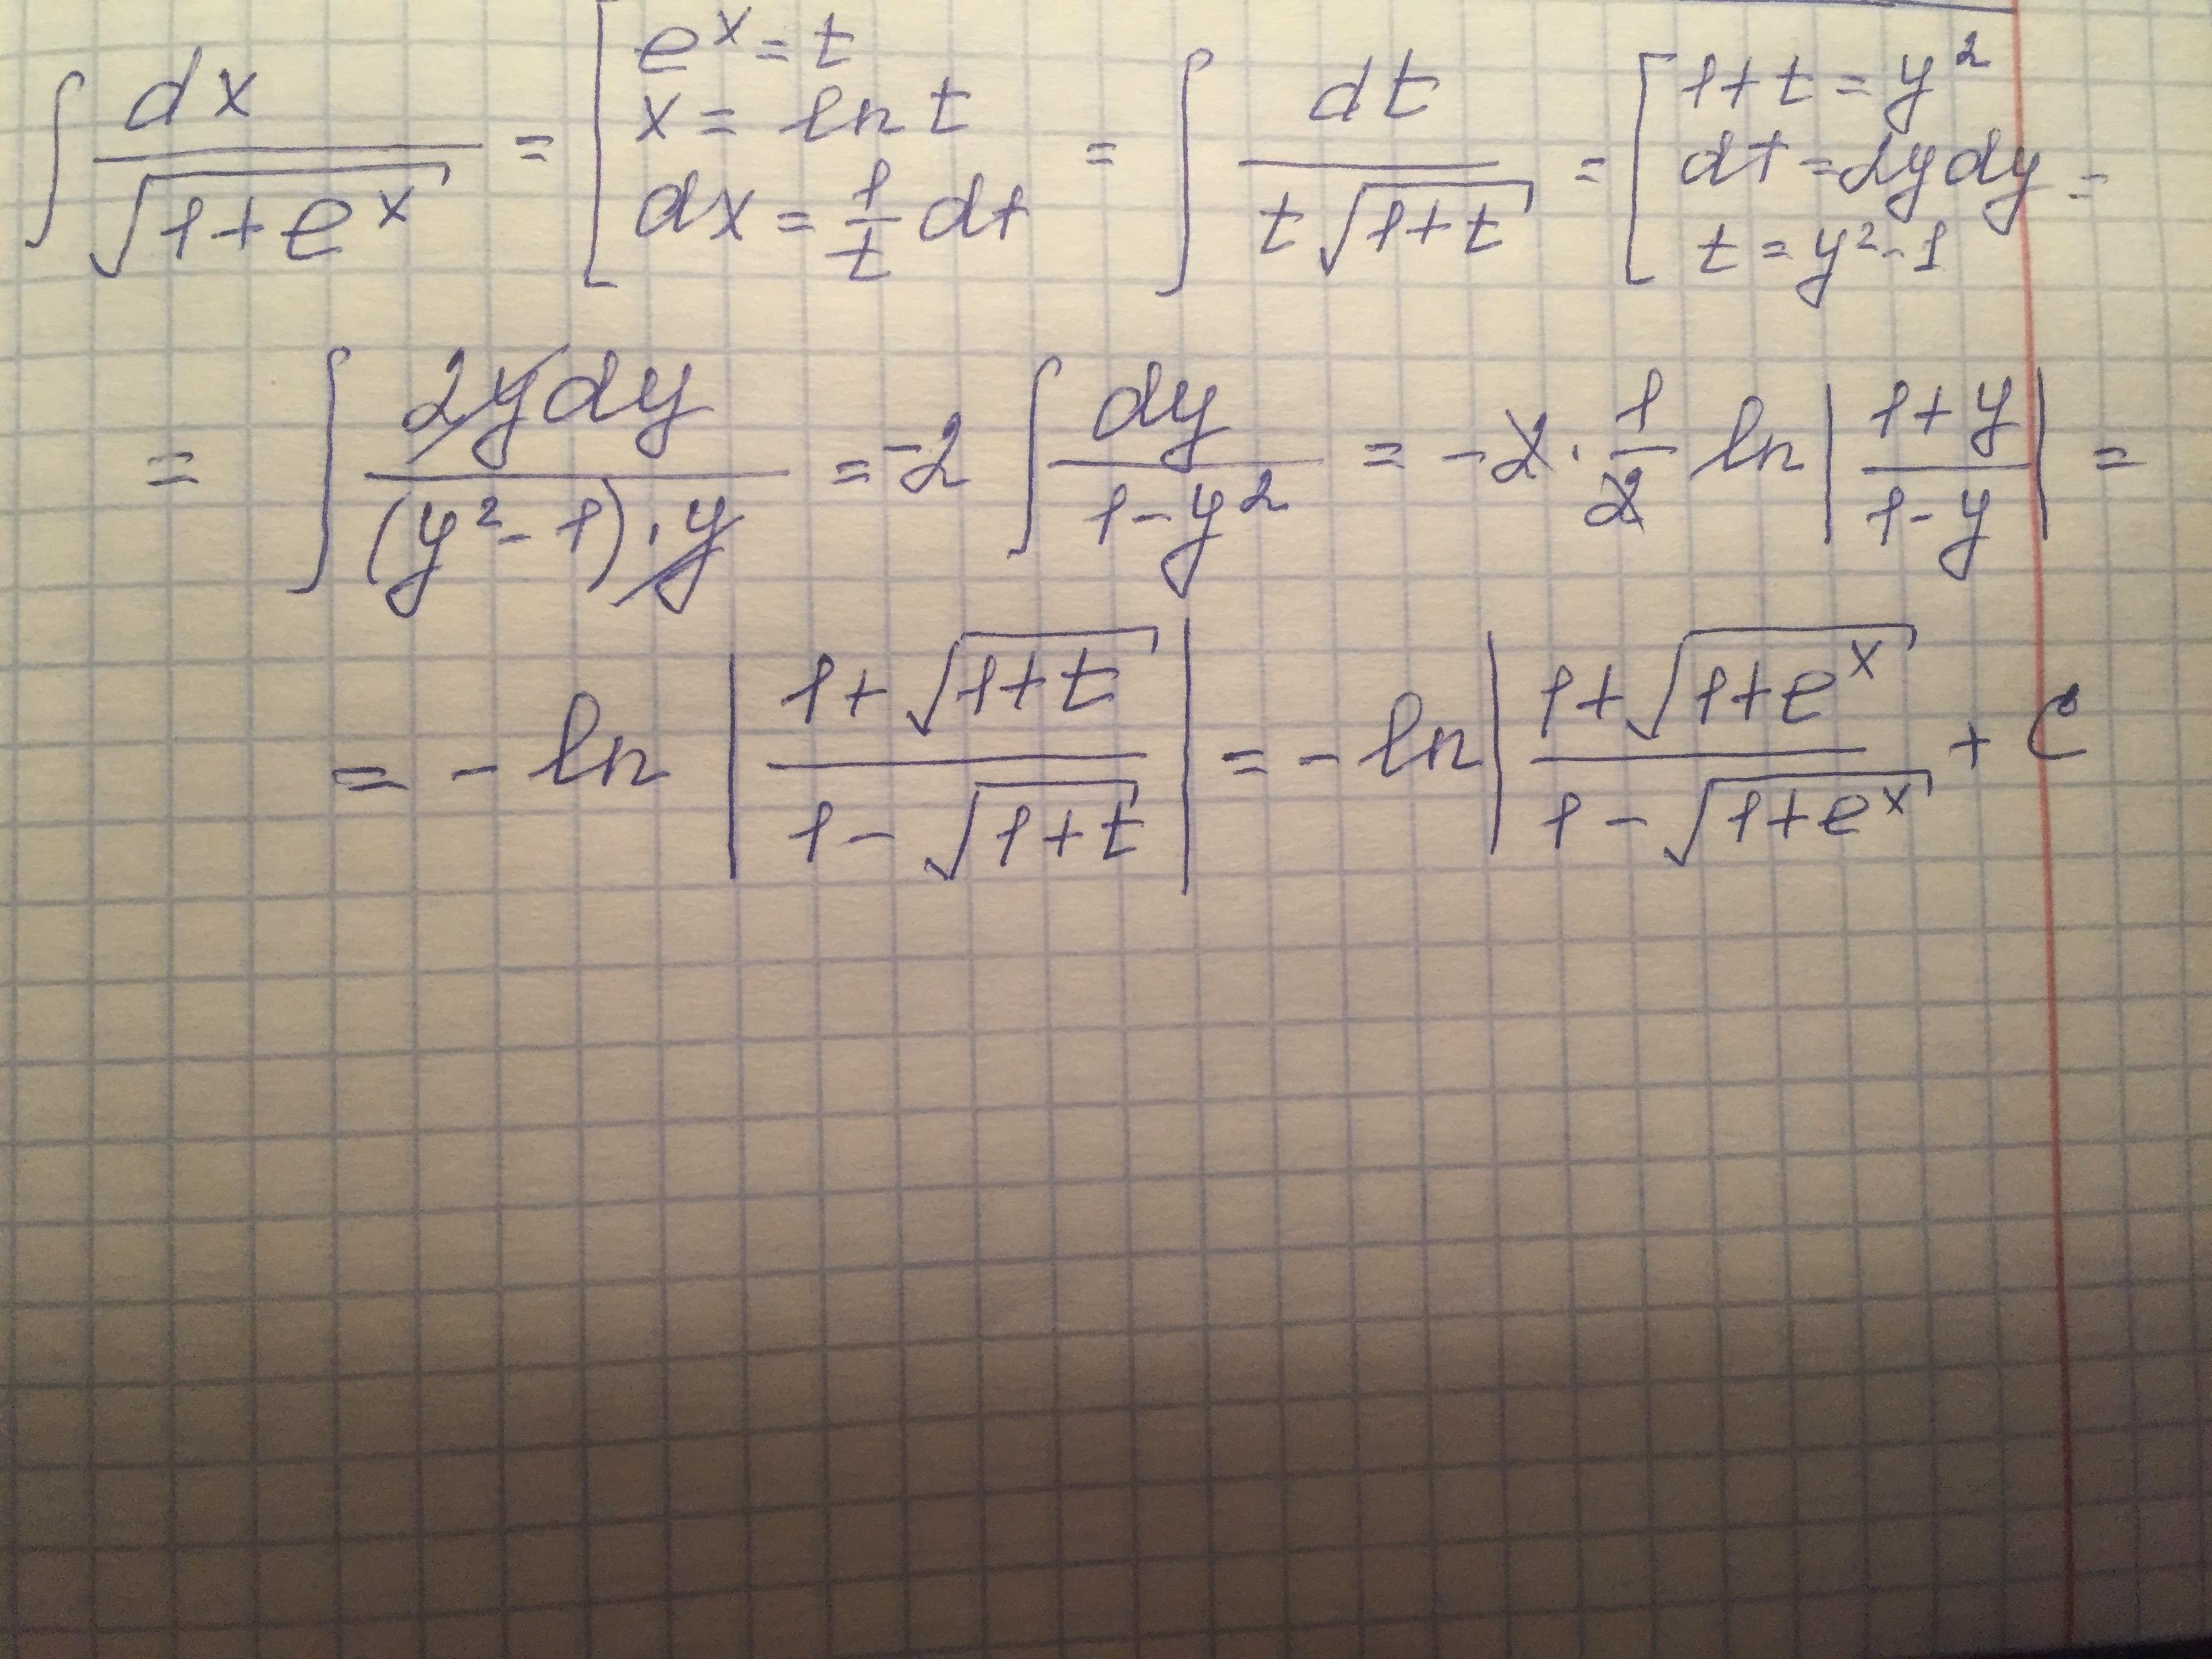 ∫ dx / √(1+e^x) = [ e^x = t  x = ln t  dx = 1/t dt = ∫ dt / (t√(1+t)) = [ 1+t = y²  dt = 2y dy  t = y²-1 =
= ∫ 2y dy / ((y²-1)·y) = -2 ∫ dy / (1-y²) = -2 · 1/2 ln |(1+y)/(1-y)| =
= - ln |(1+√(1+t)) / (1-√(1+t))| = - ln |(1+√(1+e^x)) / (1-√(1+e^x)) + C